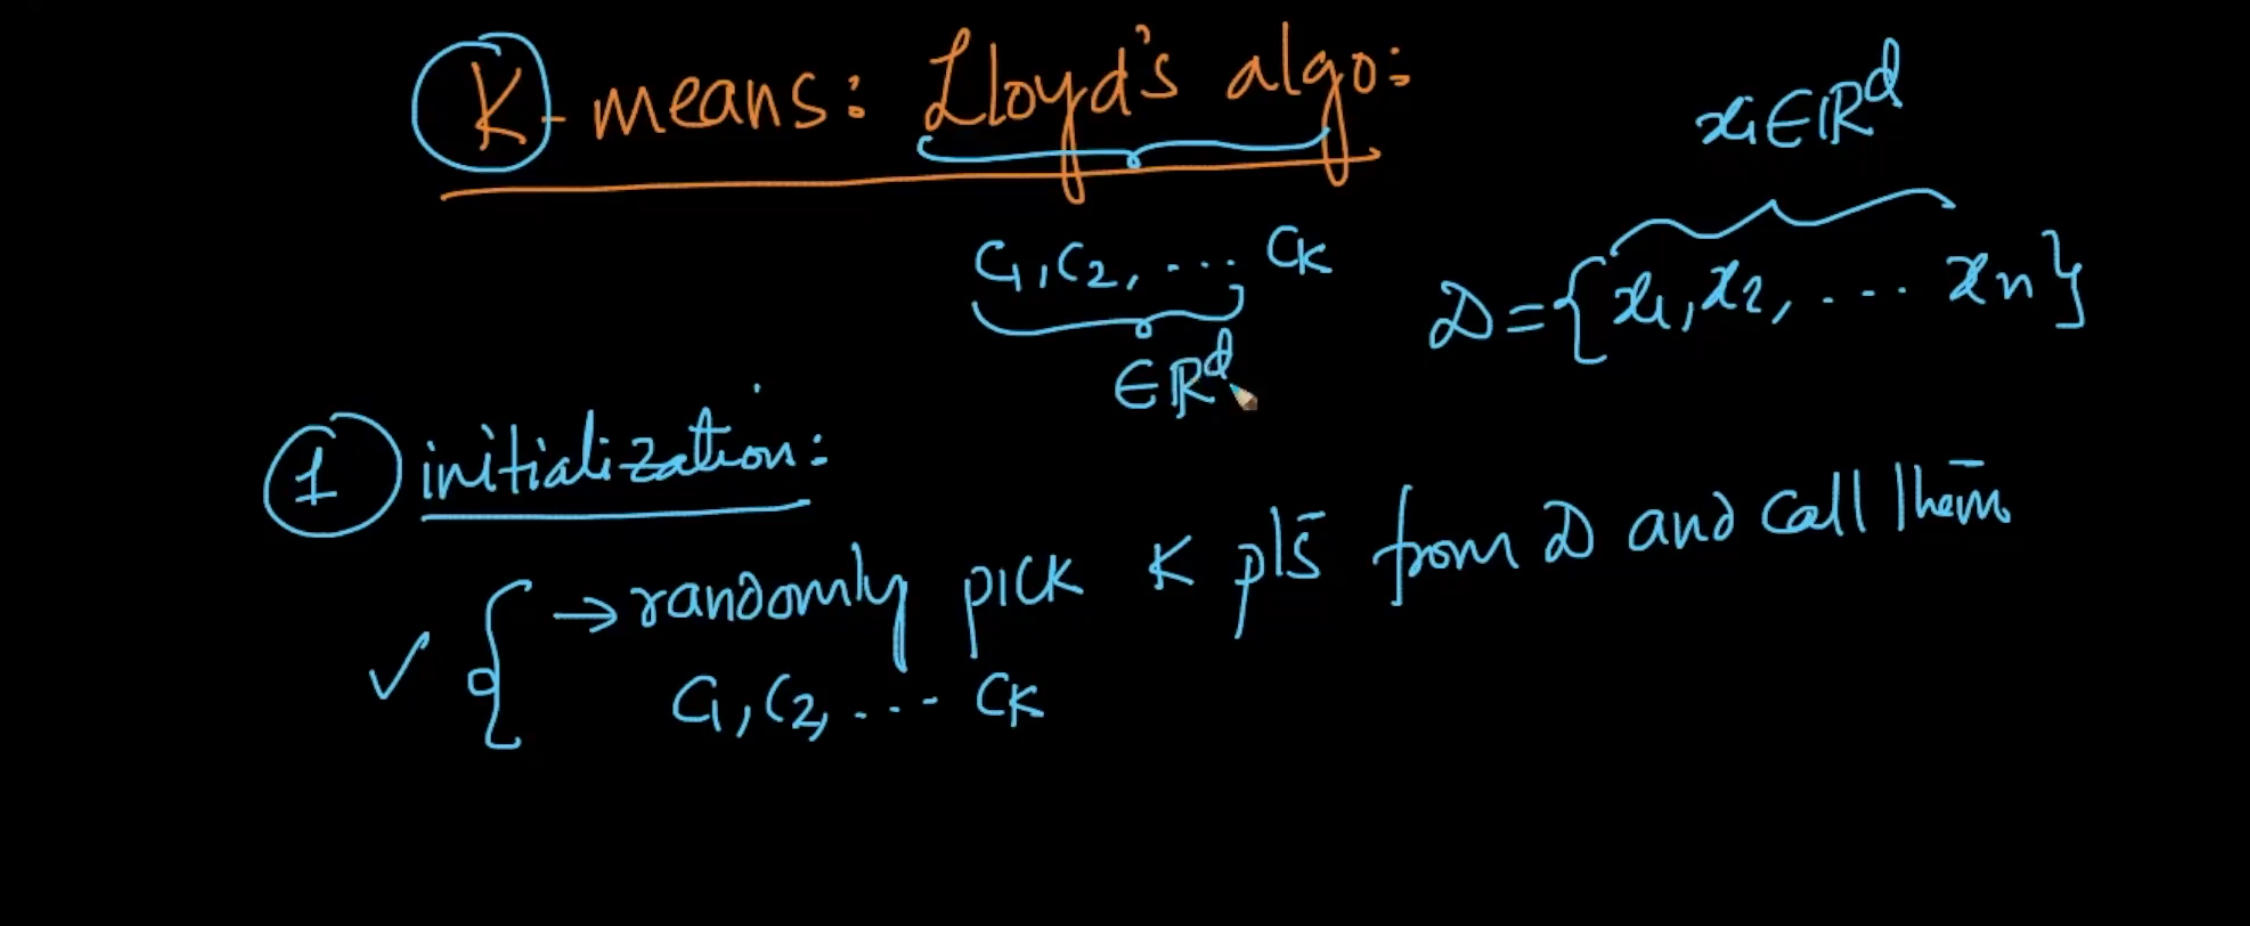 K-means: Lloyd's algo:
xi∈ℝᵈ
C1, C2, ... CK
∈ℝᵈ
D = {x1, x2, ... xn}
1 initialization:
→ randomly pick K pts from D and call them
C1, C2, ... CK